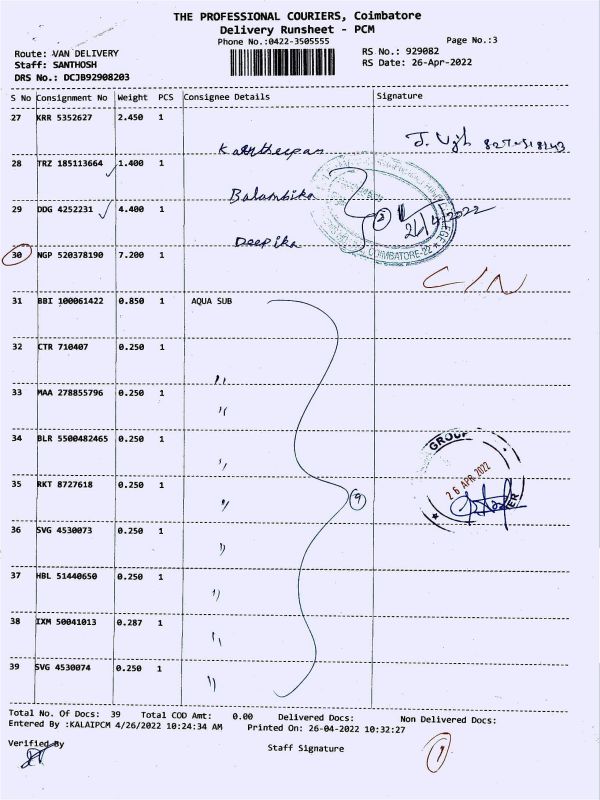 THE PROFESSIONAL COURIERS, Coimbatore
Delivery Runsheet - PCM
Phone No.:0422-3505555
Page No.:3
Route: VAN DELIVERY
RS No.: 929082
Staff: SANTHOSH
RS Date: 26-Apr-2022
DRS No.: DCJB92908203
S No Consignment No Weight PCS Consignee Details Signature
27 KRR 5352627 2.450 1
28 TRZ 185113664 1.400 1
Balambika
29 DDG 4252231 4.400 1
Deepika
COIMBATORE-22
30 NGP 520378190 7.200 1
C/N
31 BBI 100061422 0.850 1 AQUA SUB
32 CTR 710407 0.250 1
33 MAA 278855796 0.250 1
34 BLR 5500482465 0.250 1
GROUP
35 RKT 8727618 0.250 1
9
26 APR 2022
36 SVG 4530073 0.250 1
37 HBL 51440650 0.250 1
38 IXM 50041013 0.287 1
39 SVG 4530074 0.250 1
Total No. Of Docs: 39 Total COD Amt: 0.00 Delivered Docs: Non Delivered Docs:
Entered By :KALAIPCM 4/26/2022 10:24:34 AM Printed On: 26-04-2022 10:32:27
Verified By
Staff Signature